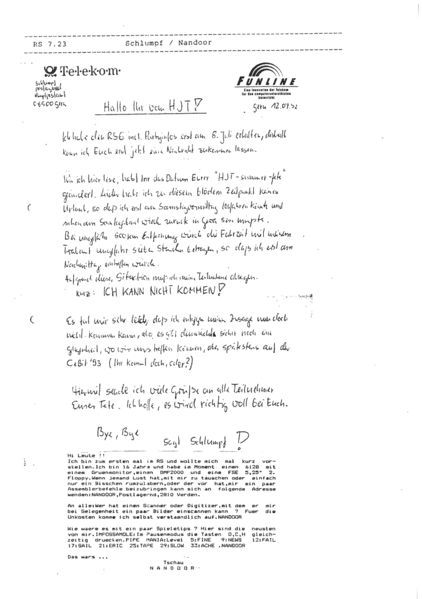 RS 7.23 Schlumpf / Nandoor
Telekom
FUNLINE
Schlumpf
Hallo Ihr vom HJT!
Gera 12.07.92
Ich habe den RSG incl. erst am 8. Juli erhalten, deshalb
kann ich Euch erst jetzt eine Nachricht zukommen lassen.
Wie ich hier lese, habt Ihr das Datum Eurer "HJT-summer-fete"
geändert. Leider habe ich zu diesem blöden Zeitpunkt keinen
Urlaub, so daß ich erst am Samstagvormittag losfahren könnte und
schon am Sonntag wieder zurück in Gera sein müßte.
Bei ungefähr 600km Entfernung würde die Fahrzeit mit meinem
Trabant ungefähr Stunden betragen, so daß ich erst am
Nachmittag eintreffen würde.
Aufgrund dieser Situation muß ich meine Teilnahme absagen.
kurz: ICH KANN NICHT KOMMEN!
Es tut mir sehr leid, daß ich entgegen meiner Zusage nun doch
nicht kommen kann, aber es gibt demnächst sicher noch eine
Gelegenheit, wo wir uns treffen können, aber spätestens auf der
CeBit '93 (Ihr kommt doch, oder?)
Hiermit sende ich viele Grüße an alle Teilnehmer
Eurer Fete. Ich hoffe, es wird richtig voll bei Euch.
Bye, Bye
sagt Schlumpf!
Hi Leute !!
Ich bin zum ersten mal im RS und wollte mich mal kurz vor-
stellen.Ich bin 16 Jahre und habe im Moment einen 6128 mit
einem Gruenmonitor,einen DMP2000 und eine FSE 5,25" 2.
Floppy.Wenn jemand Lust hat,mit mir zu tauschen oder einfach
nur ein Bisschen rumzulabern,oder der vor hat,mir ein paar
Assemblerbefehle beizubringen kann sich an folgende Adresse
wenden:NANDOOR,Postlagernd,2810 Verden.
An alle:Wer hat einen Scanner oder Digitizer,mit dem er mir
bei Gelegenheit ein paar Bilder einscannen kann ? Fuer die
Unkosten komme ich selbst verstaendlich auf.NANDOOR
Wie waere es mit ein paar Spieletips ? Hier sind die neusten
von mir.IMPOSSAMOLE:Im Pausenmodus die Tasten D,C,H gleich-
zeitig druecken.PIPE MANIA:Level 5:FINE 9:NEWS 12:FAIL
17:SAIL 21:ERIC 25:TAPE 29:SLOW 33:ACHE .NANDOOR
Das wars ...
Tschau
N A N D O O R